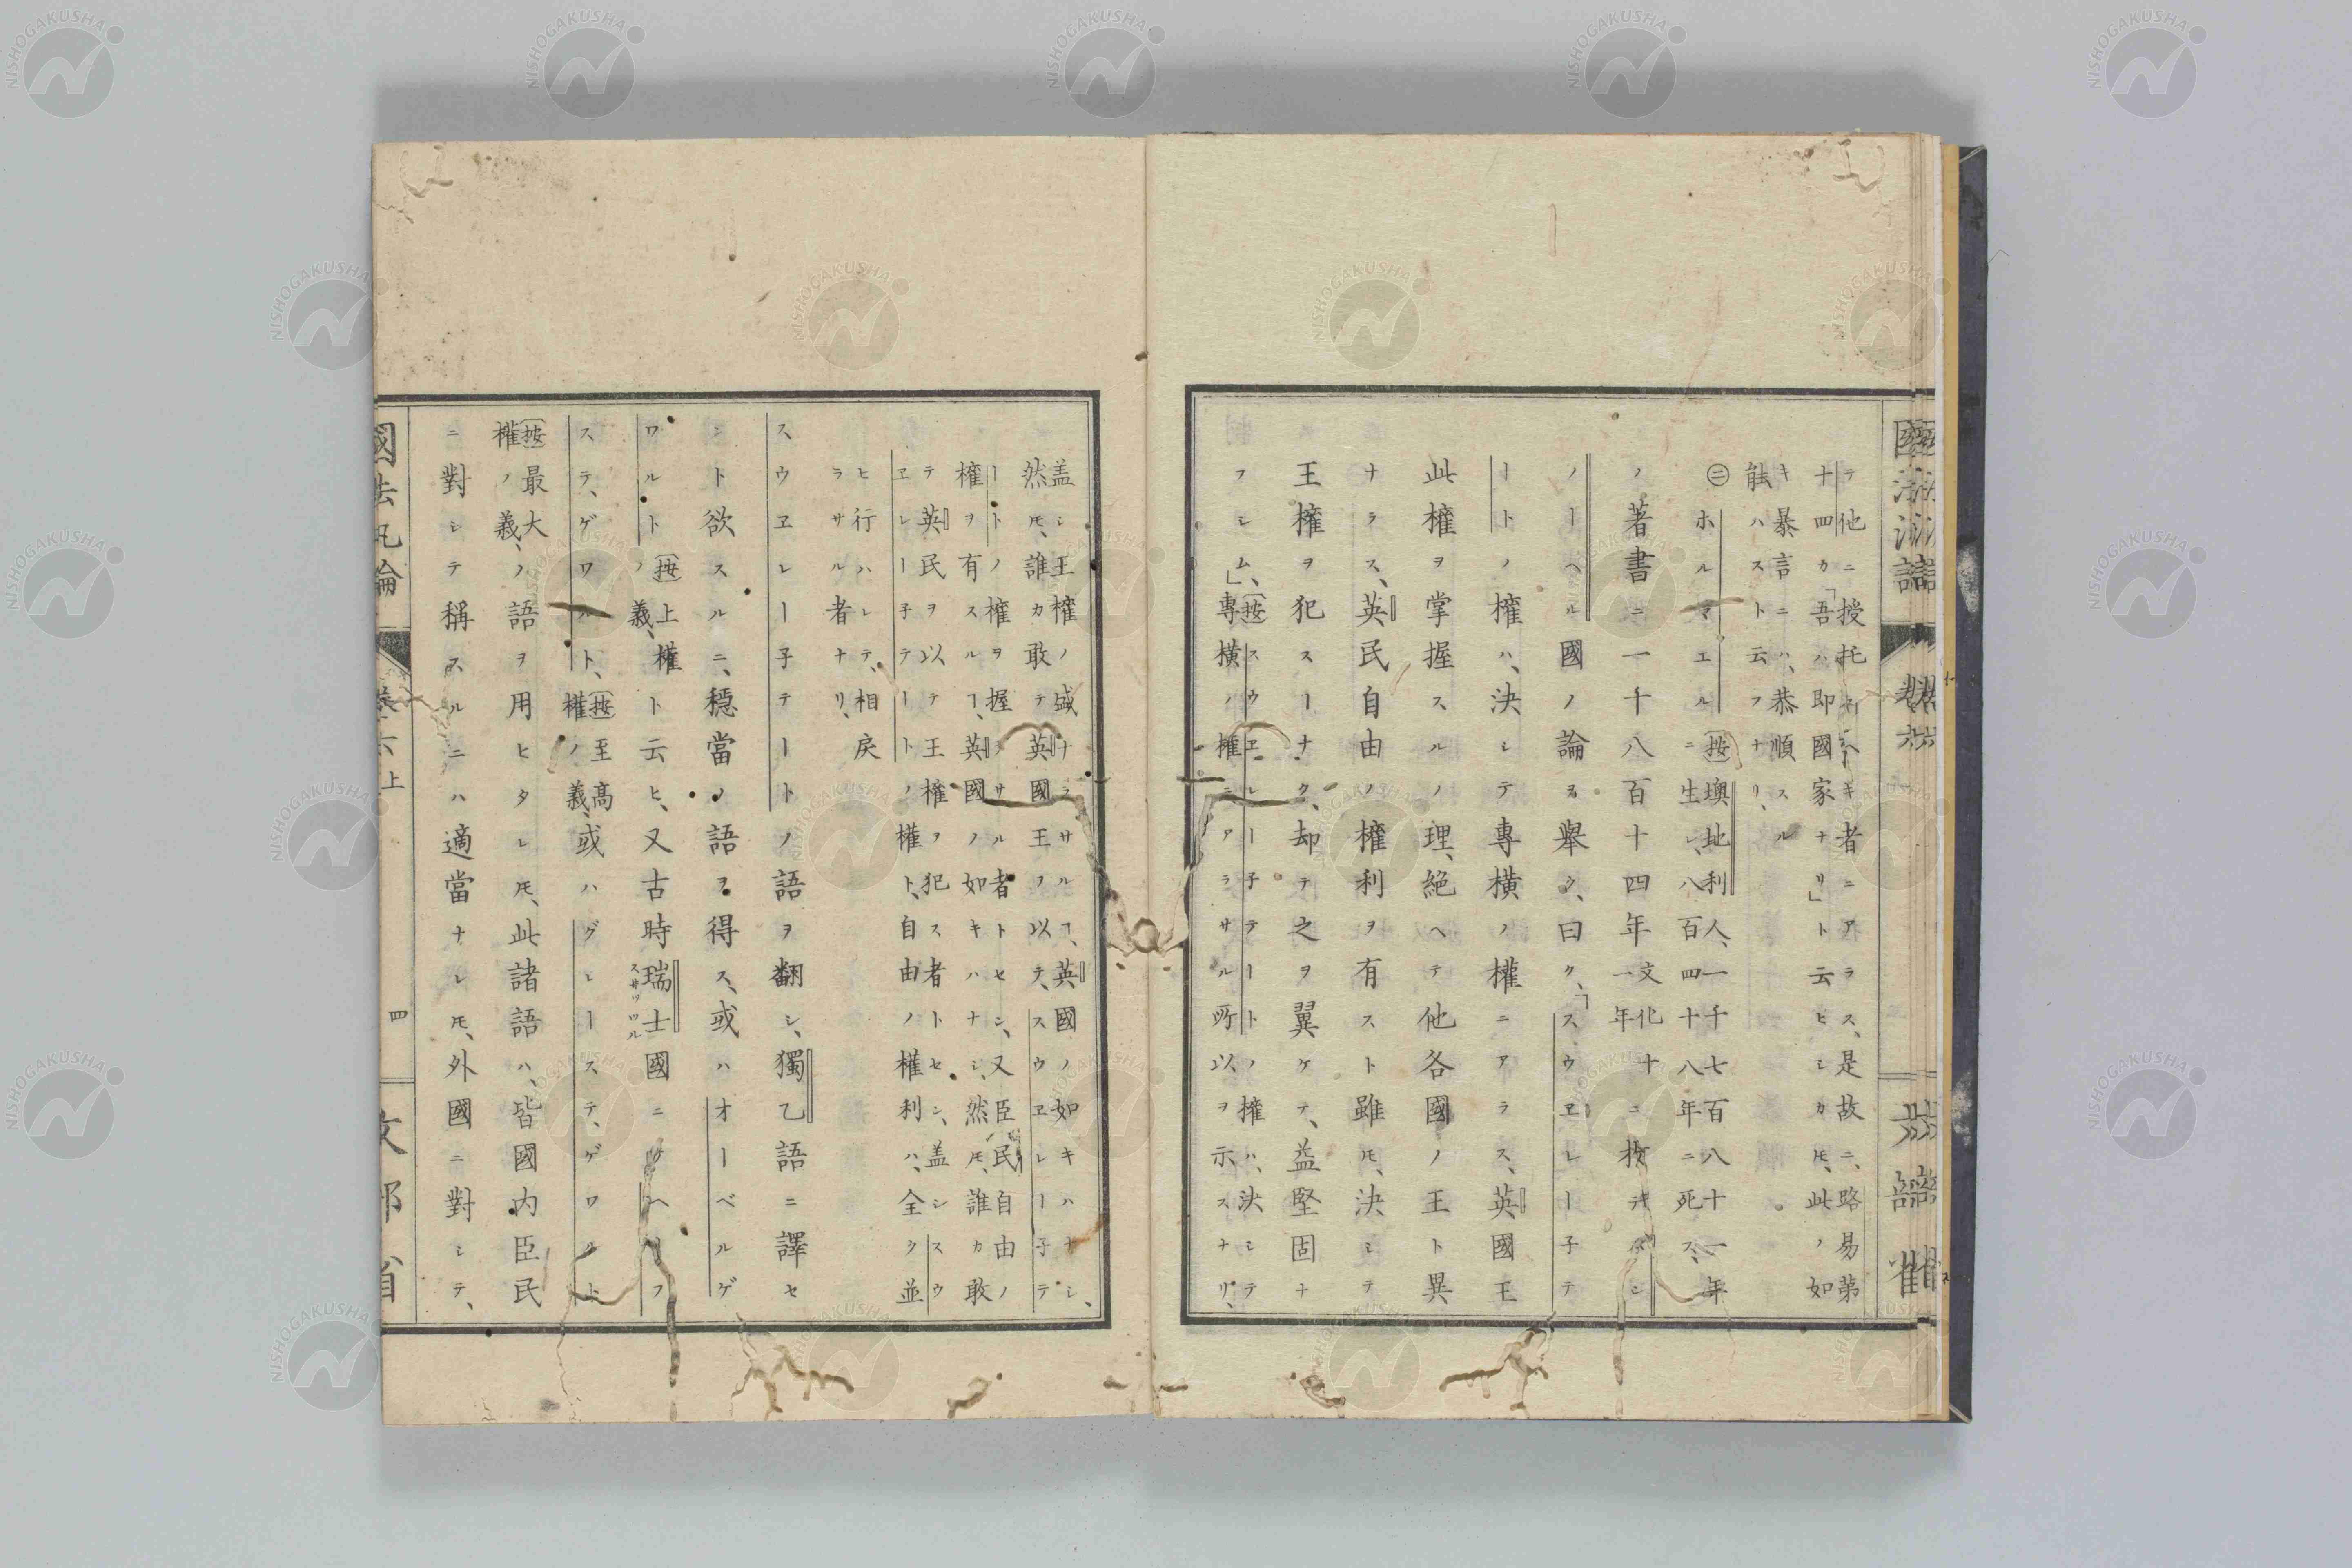 テ他ニ授托スヘキ者ニアラス、是故ニ、路易第
十四カ「吾ハ即國家ナリ」ト云ヒシカ𪜈、此ノ如
キ暴言ニハ、恭順スル
能ハスト云フナリ、
㊁ホルマエルニ
墺地利人、一千七百八十一年
生レ、八百四十八年ニ死ス、
ノ著書ニ一千八百十四年
文化十
一年
ニ
ノーヘル國ノ論ヲ舉ク、曰ク、「スウヱレー子テ
ートノ權ハ、決レテ專横ノ權ニアラス、英國王
此權ヲ掌握スルノ理、絕ヘテ他各國ノ王ト異
ナラス、英民自由ノ權利ヲ有スト雖𪜈、決シテ
王權ヲ犯スーナク、却テ之ヲ翼ケテ、益堅固ナ
フシム、」
按スウヱレー子テートノ權ハ、決シテ
專横ノ權ニアラサル所以ヲ示スナリ、
盖シ王權ノ盛ナラサルヿ、英國ノ如キハナシ、
然𪜈、誰カ敢テ英國王ヲ以テ、スウヱレー子テ
ートノ權ヲ握ラサル者トセン、又臣民自由ノ
權ヲ有スルヿ、英國ノ如キハナシ、然𪜈、誰カ敢
テ英民ヲ以テ王權ヲ犯ス者トセン、盖シスウ
ヱレー子テートノ權ト、自由ノ權利ハ、全ク並
ヒ行ハレテ、相戾
ラサル者ナリ、
スウヱレー子テートノ語ヲ翻シ、獨乙語ニ譯セ
ント欲スルニ、穩當ノ語ヲ得ス、或ハオーベルゲ
ワルト
按上權
ノ義、
ト云ヒ、又古時瑞士國ニ
ステ、ゲワルト、
按至高
權ノ義、
或ハグヒーステ、ゲワルト
按最大
權ノ義、
ノ語ヲ用ヒタレ𪜈、此諸語ハ、皆國内臣民
ニ對シテ稱スルニハ適當ナレ𪜈、外國ニ對シテ、
國法汎論
卷六上
四
文部省
NISHOGAKUSHA